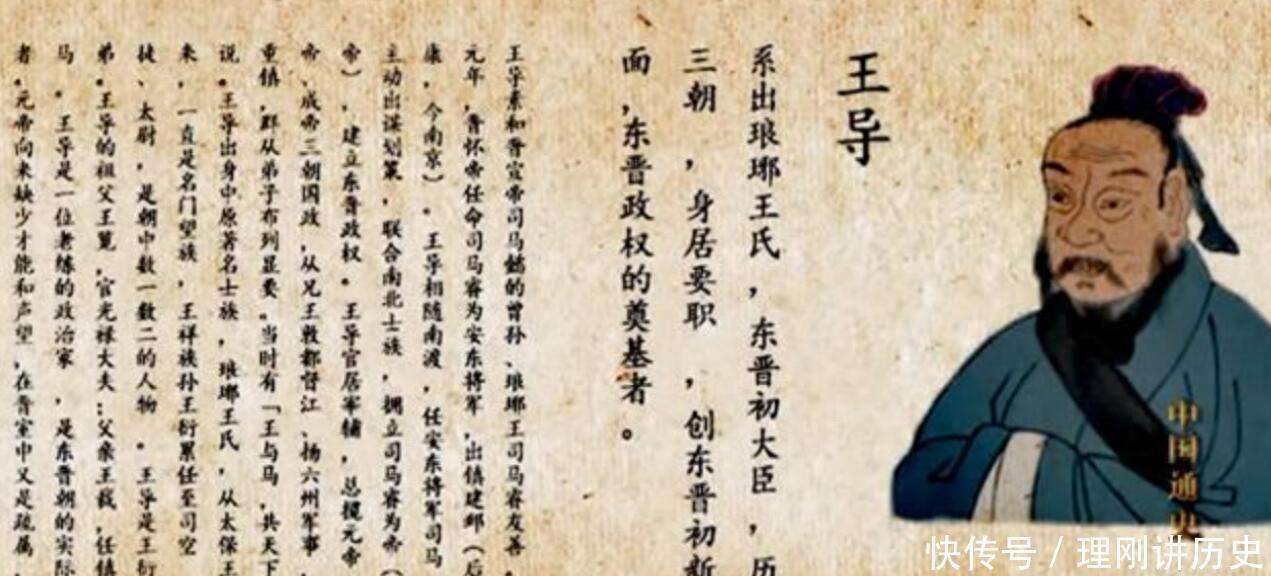 王导
系出琅琊王氏，东晋初大臣，历
三朝，身居要职，创东晋初新
面，东晋政权的奠基者。
王导素和晋宣帝司马懿的曾孙、琅琊王司马睿友善。
元年，晋怀帝任命司马睿为安东将军，出镇建邺（后
康，今南京）。王导相随南渡，任安东将军司马
主动出谋划策，联合南北士族，拥立司马睿为帝（
帝），建立东晋政权。王导官居宰辅，总揽元帝
帝、成帝三朝国政，从兄王敦都督江、扬六州军事，
重镇，群从弟子布列显要。当时有「王与马，共天下
说。王导出身中原著名士族，琅琊王氏，从太保王
来，一直是名门望族，王祥族孙王衍累任至司空
徒、太尉，是朝中数一数二的人物。王导是王衍
弟。王导的祖父王览，官光禄大夫；父亲王裁，任镇
马。王导是一位老练的政治家，是东晋朝的实际
者。元帝向来缺少才能和声望，在晋室中又是疏属，
中国通史
快传号／理刚讲历史